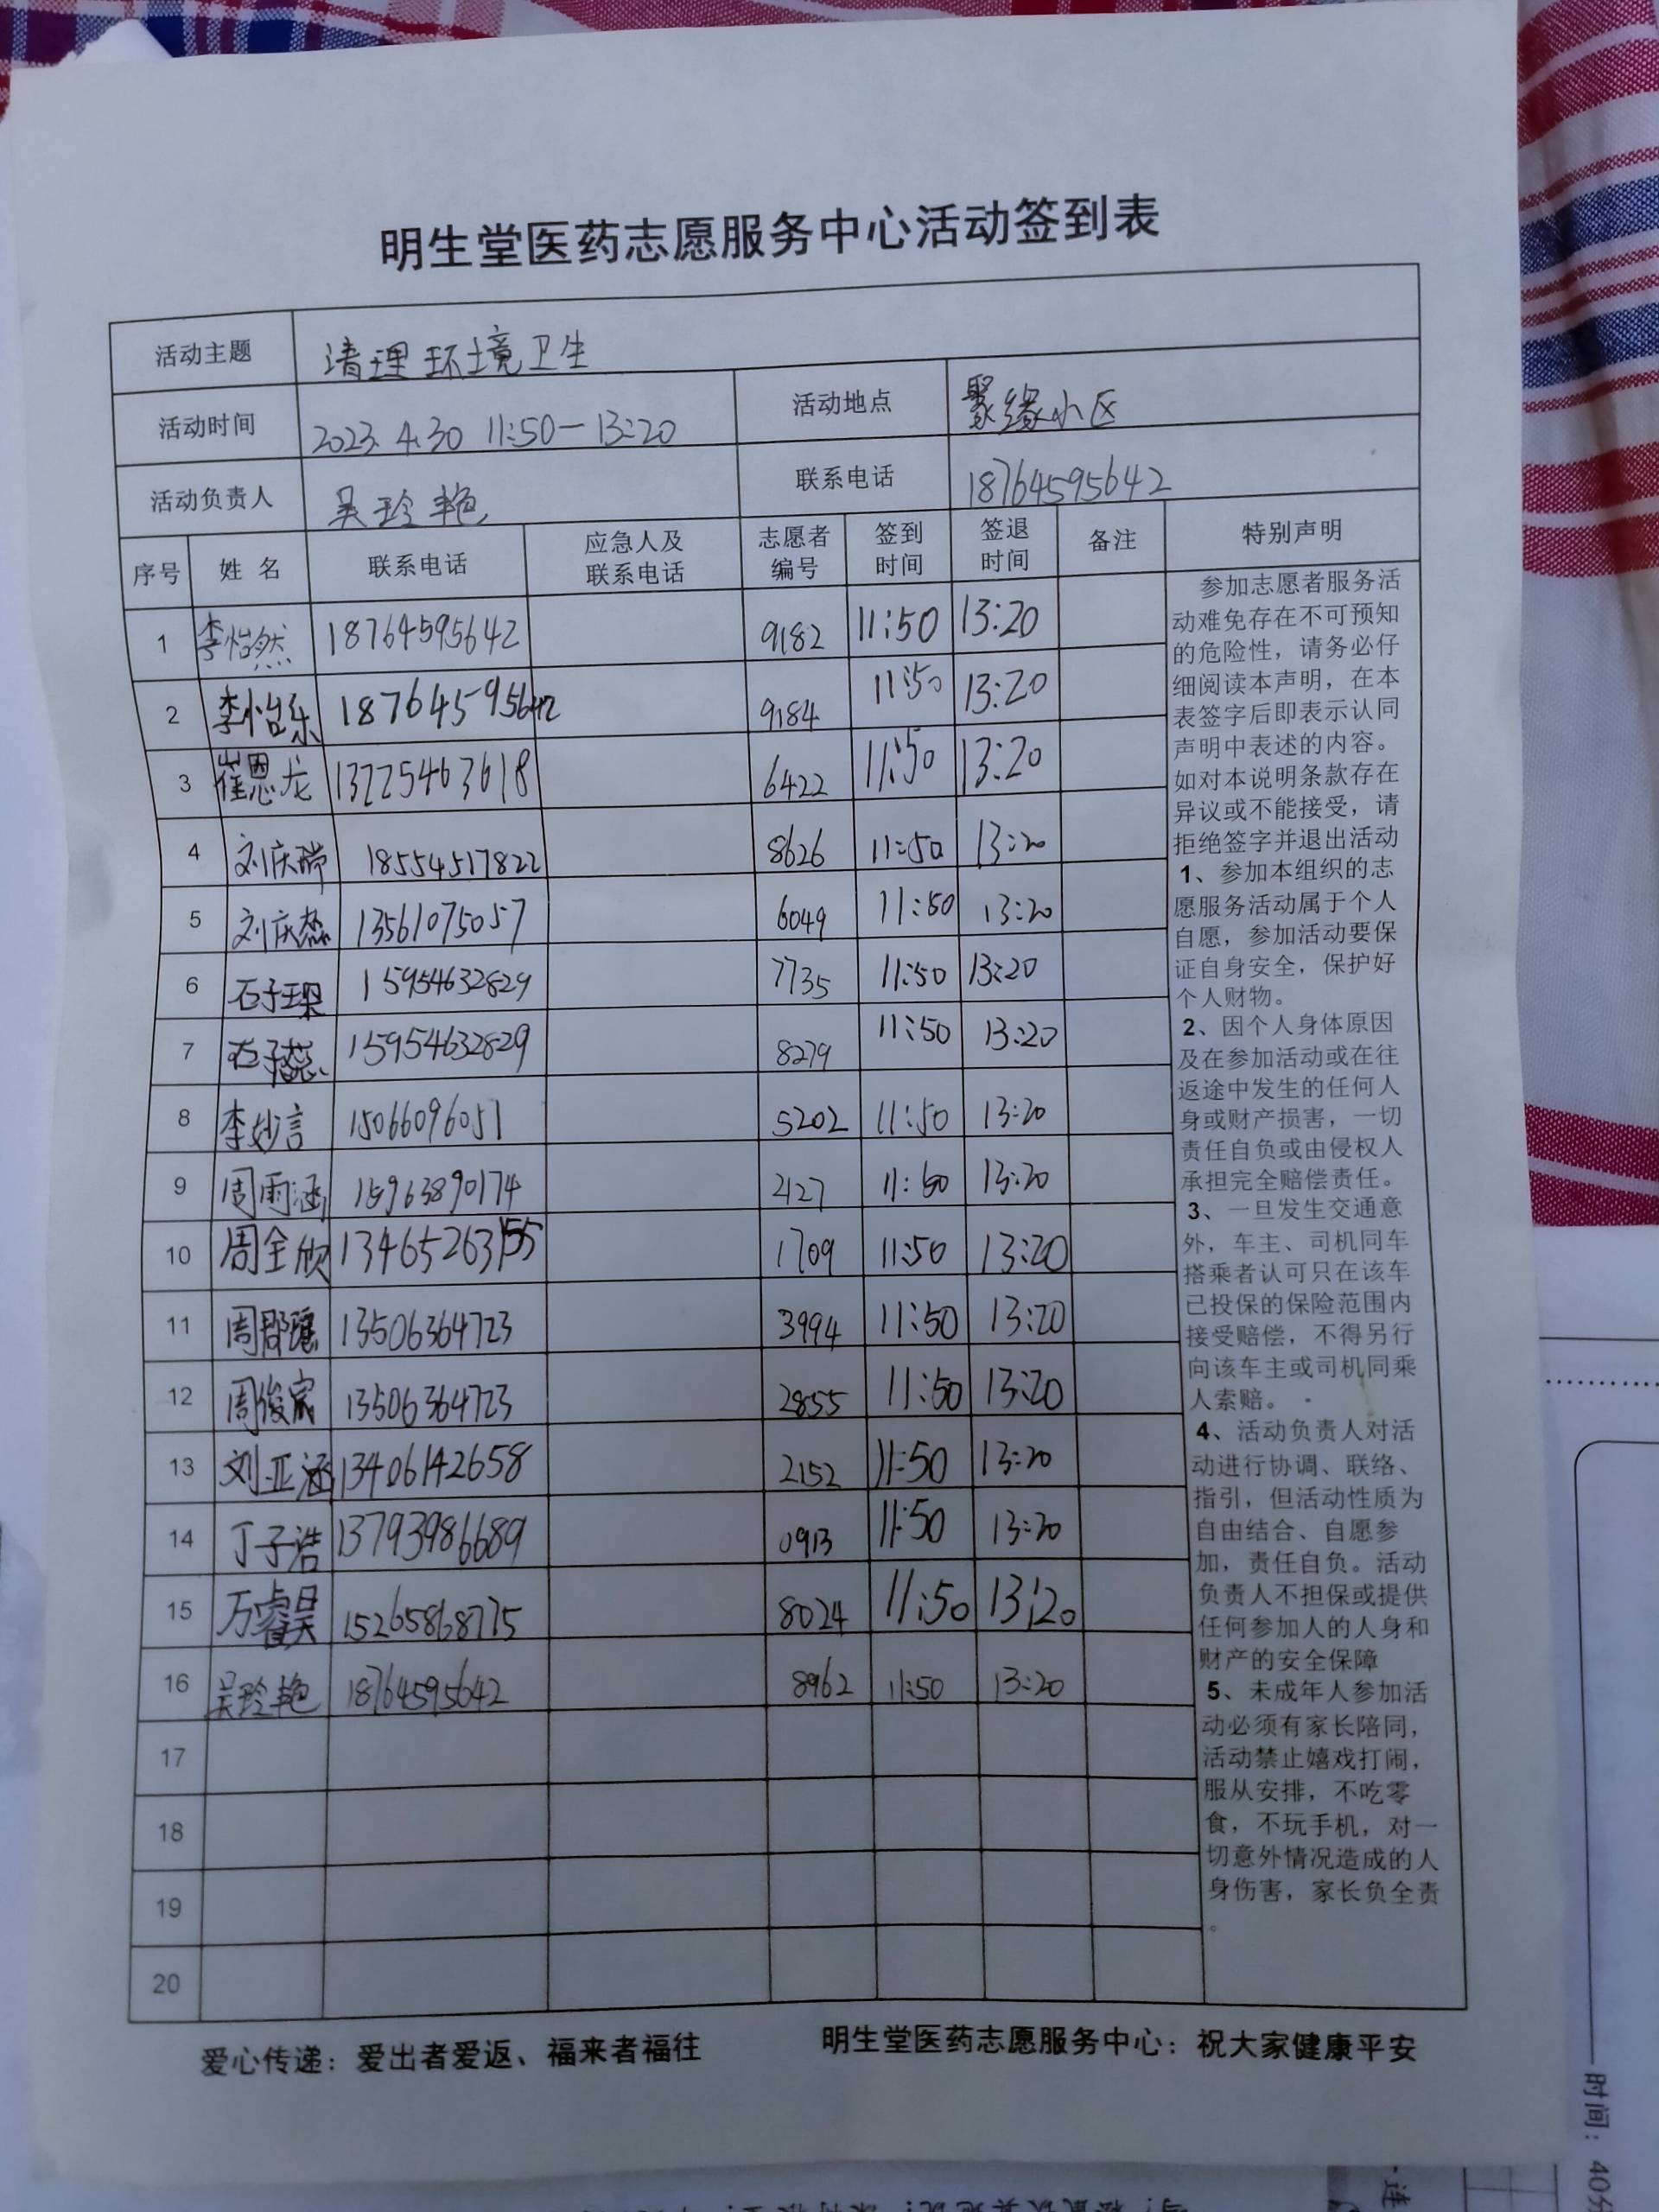 明生堂医药志愿服务中心活动签到表
活动主题 清理环境卫生
活动时间 2023.4.30 11:50-13:20 活动地点 聚缘小区
活动负责人 吴玲艳 联系电话 18764595642
序号 姓名 联系电话 应急人及联系电话 志愿者编号 签到时间 签退时间 备注 特别声明
1 李怡然 18764595642 9182 11:50 13:20
2 李怡乐 18764595642 9184 11:50 13:20
3 崔恩龙 13225463618 6422 11:50 13:20
4 刘庆瑞 18554517822 8626 11:50 13:20
5 刘庆 13561075057 6049 11:50 13:20
6 石子琪 15954632829 7735 11:50 13:20
7 石子蕊 15954632829 8279 11:50 13:20
8 李妙言 15066096051 5202 11:50 13:20
9 周雨涵 15963890174 2127 11:50 13:20
10 周全欣 13465263155 1709 11:50 13:20
11 周郡 13506364723 3994 11:50 13:20
12 周俊宸 13506364723 2855 11:50 13:20
13 刘亚涵 13406142658 2152 11:50 13:20
14 丁子浩 13793986689 0913 11:50 13:20
15 万睿昊 15265868775 8024 11:50 13:20
16 吴玲艳 18764595642 8962 11:50 13:20
17
18
19
20
参加志愿者服务活
动难免存在不可预知
的危险性，请务必仔
细阅读本声明，在本
表签字后即表示认同
声明中表述的内容。
如对本说明条款存在
异议或不能接受，请
拒绝签字并退出活动
1、参加本组织的志
愿服务活动属于个人
自愿，参加活动要保
证自身安全，保护好
个人财物。
2、因个人身体原因
及在参加活动或在往
返途中发生的任何人
身或财产损害，一切
责任自负或由侵权人
承担完全赔偿责任。
3、一旦发生交通意
外，车主、司机同车
搭乘者认可只在该车
已投保的保险范围内
接受赔偿，不得另行
向该车主或司机同乘
人索赔。
4、活动负责人对活
动进行协调、联络、
指引，但活动性质为
自由结合、自愿参
加，责任自负。活动
负责人不担保或提供
任何参加人的人身和
财产的安全保障
5、未成年人参加活
动必须有家长陪同，
活动禁止嬉戏打闹，
服从安排，不吃零
食，不玩手机，对一
切意外情况造成的人
身伤害，家长负全责
。
爱心传递：爱出者爱返、福来者福往 明生堂医药志愿服务中心：祝大家健康平安
时间：40分